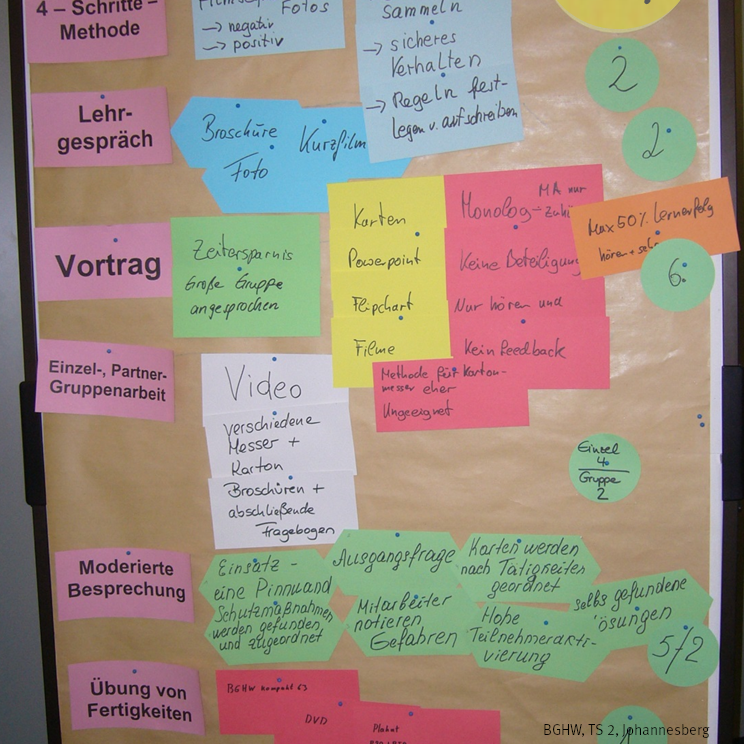 4 – Schritte –
Methode
Fotos
→ negativ
→ positiv
sammeln
→ sicheres
Verhalten
→ Regeln fest-
legen u. aufschreiben
2
Lehr-
gespräch
Broschüre
Kurzfilm
Foto
2
Vortrag
Zeitersparnis
Große Gruppe
angesprochen
Karten
Powerpoint
Flipchart
Filme
Monolog - MA nur
Keine Beteiligung
Nur hören und
Kein Feedback
Methode für Karton-
messer eher
Ungeeignet
Max 50% Lernerfolg
hören + sehen
6.
Einzel-, Partner-
Gruppenarbeit
Video
verschiedene
Messer +
Karton
Broschüren +
abschließende
Fragebogen
Einzel
4
Gruppe
2
Moderierte
Besprechung
Einsatz -
eine Pinnwand
Schutzmaßnahmen
werden gefunden,
und zugeordnet
Ausgangsfrage
Mitarbeiter
notieren
Gefahren
Karten werden
nach Tätigkeiten
geordnet
Hohe
Teilnehmerakti-
vierung
selbs gefundene
ösungen
5/2
Übung von
Fertigkeiten
BGHW kompakt 63
DVD
Plakat
BGHW, TS 2, Johannesberg